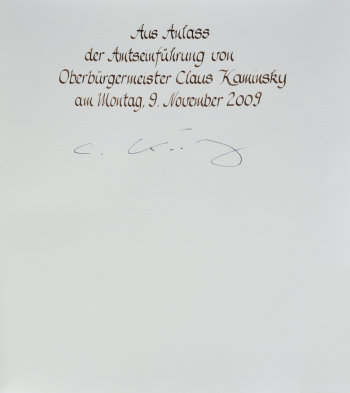 Aus Anlass
der Amtseinführung von
Oberbürgermeister Claus Kaminsky
am Montag, 9. November 2009